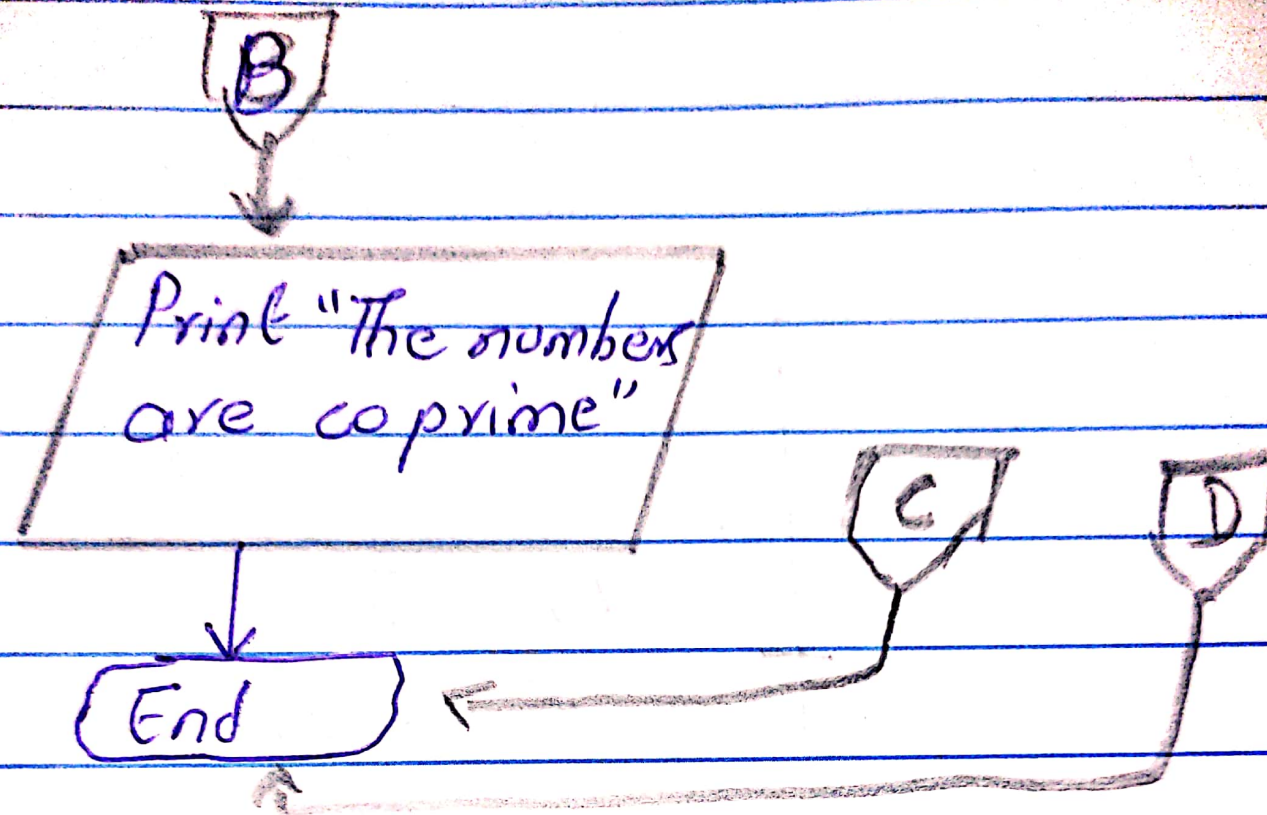 B
Print "The numbers
are coprime"
C
D
End